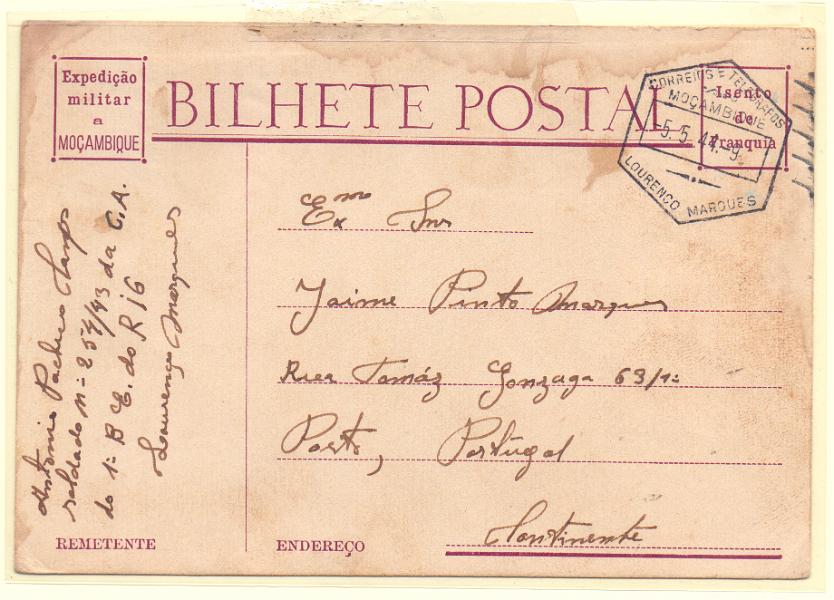 Expedição
militar
a
MOÇAMBIQUE
BILHETE POSTAL
Isento
de
franquia
CORREIOS E TELEGRAFOS
MOÇAMBIQUE
5.5.44.-9
LOURENÇO MARQUES
Exmo Snr
Jaime Pinto Marques
Rua Tomáz Gonzaga 63/1º
Porto, Portugal
Continente
António Pacheco
soldado nº 254/43 da C.A.
do 1º B E. do R I 6
Lourenço Marques
REMETENTE
ENDEREÇO